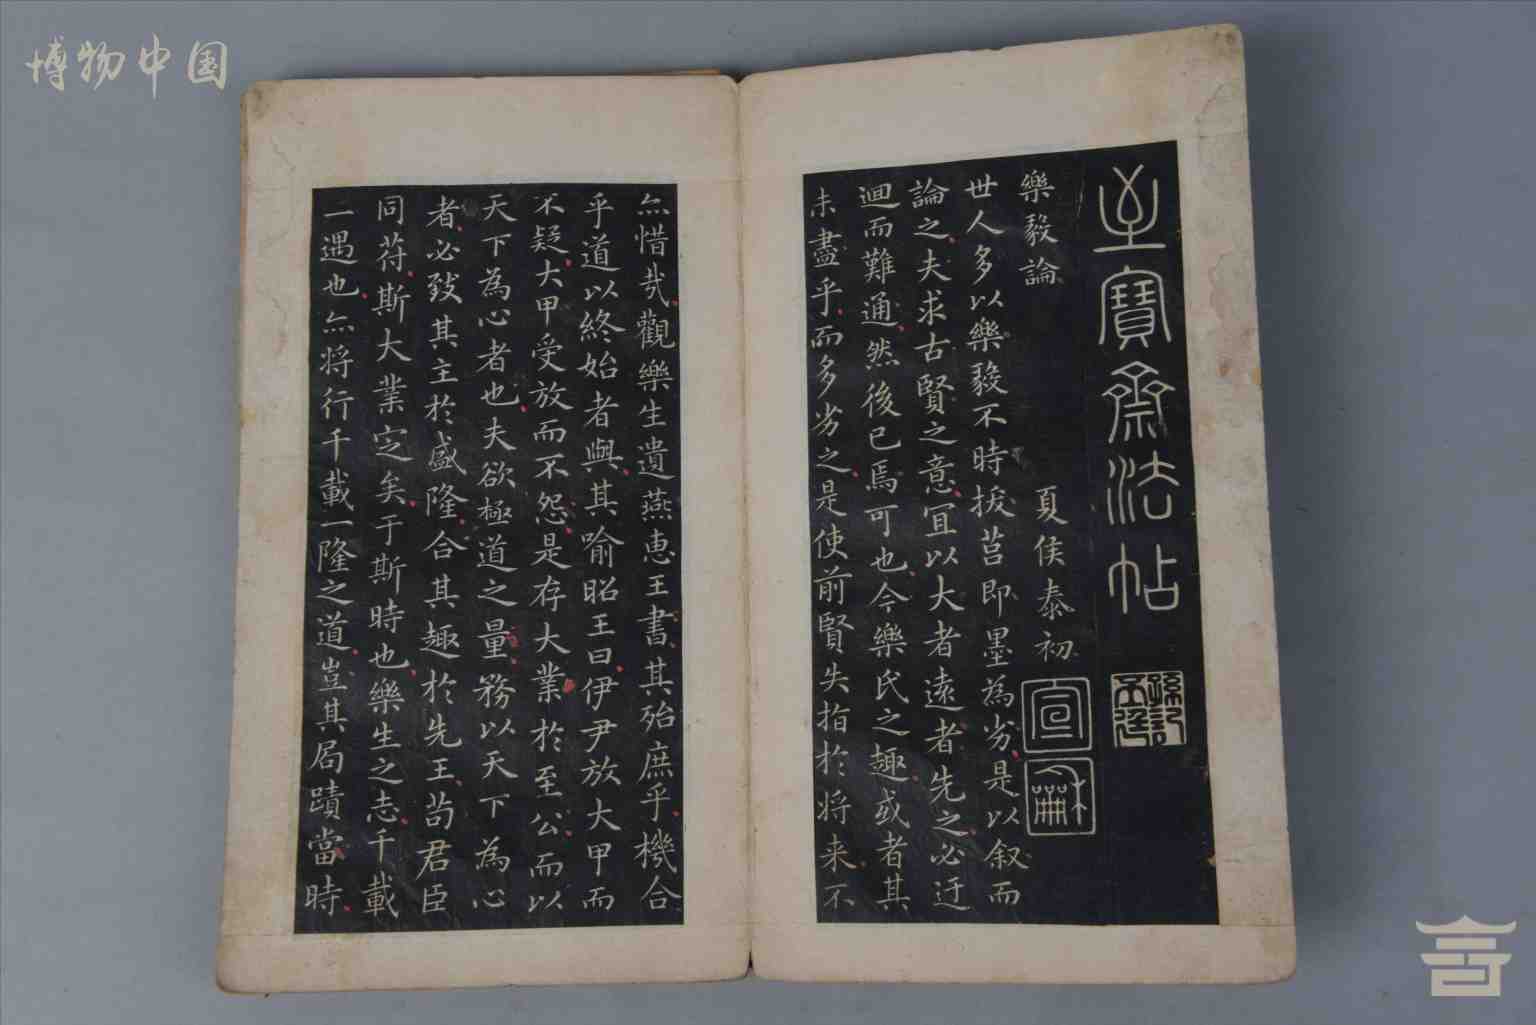 博物中国
至寶齋法帖
樂毅論　夏侯泰初
宣龢
世人多以樂毅不時拔莒即墨為劣是以叙而
論之夫求古賢之意宜以大者遠者先之必迂
迴而難通然後已焉可也今樂氏之趣或者其
未盡乎而多劣之是使前賢失指於將来不
亦惜哉觀樂生遺燕惠王書其殆庶乎機合
乎道以終始者與其喻昭王曰伊尹放大甲而
不疑大甲受放而不怨是存大業於至公而以
天下為心者也夫欲極道之量務以天下為心
者必致其主於盛隆合其趣於先王苟君臣
同苻斯大業定矣于斯時也樂生之志千載
一遇也亦將行千載一隆之道豈其局蹟當時